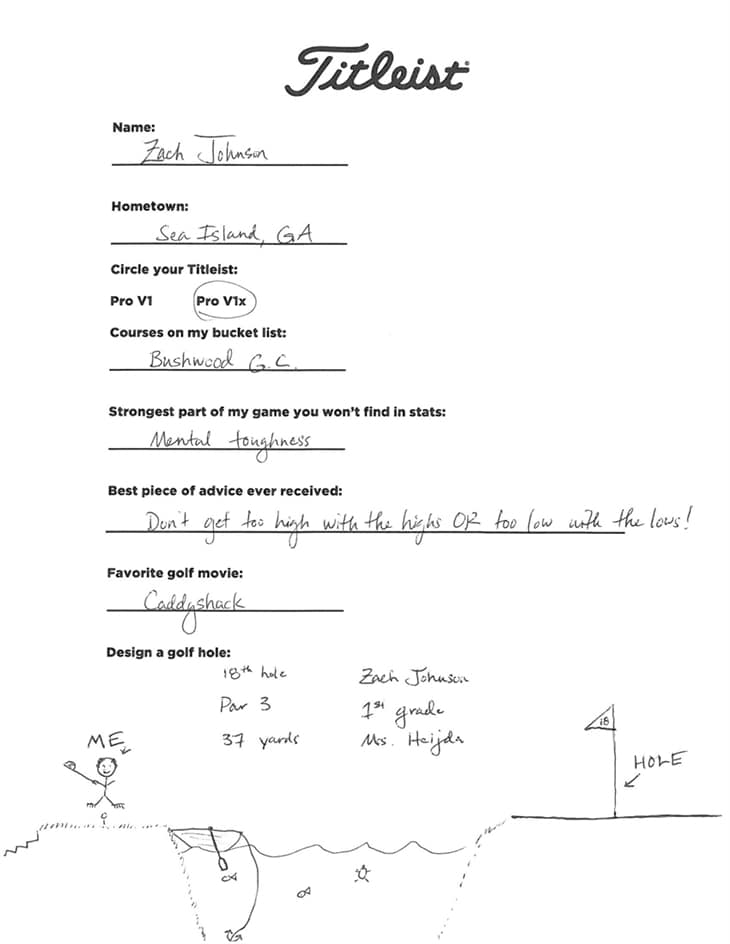 Titleist
Name:
Zach Johnson
Hometown:
Sea Island, GA
Circle your Titleist:
Pro V1 Pro V1x
Courses on my bucket list:
Bushwood G.C.
Strongest part of my game you won't find in stats:
Mental toughness
Best piece of advice ever received:
Don't get too high with the highs OR too low with the lows!
Favorite golf movie:
Caddyshack
Design a golf hole:
18th hole Zach Johnson
Par 3 1st grade
37 yards Mrs. Heijda
18
ME
HOLE